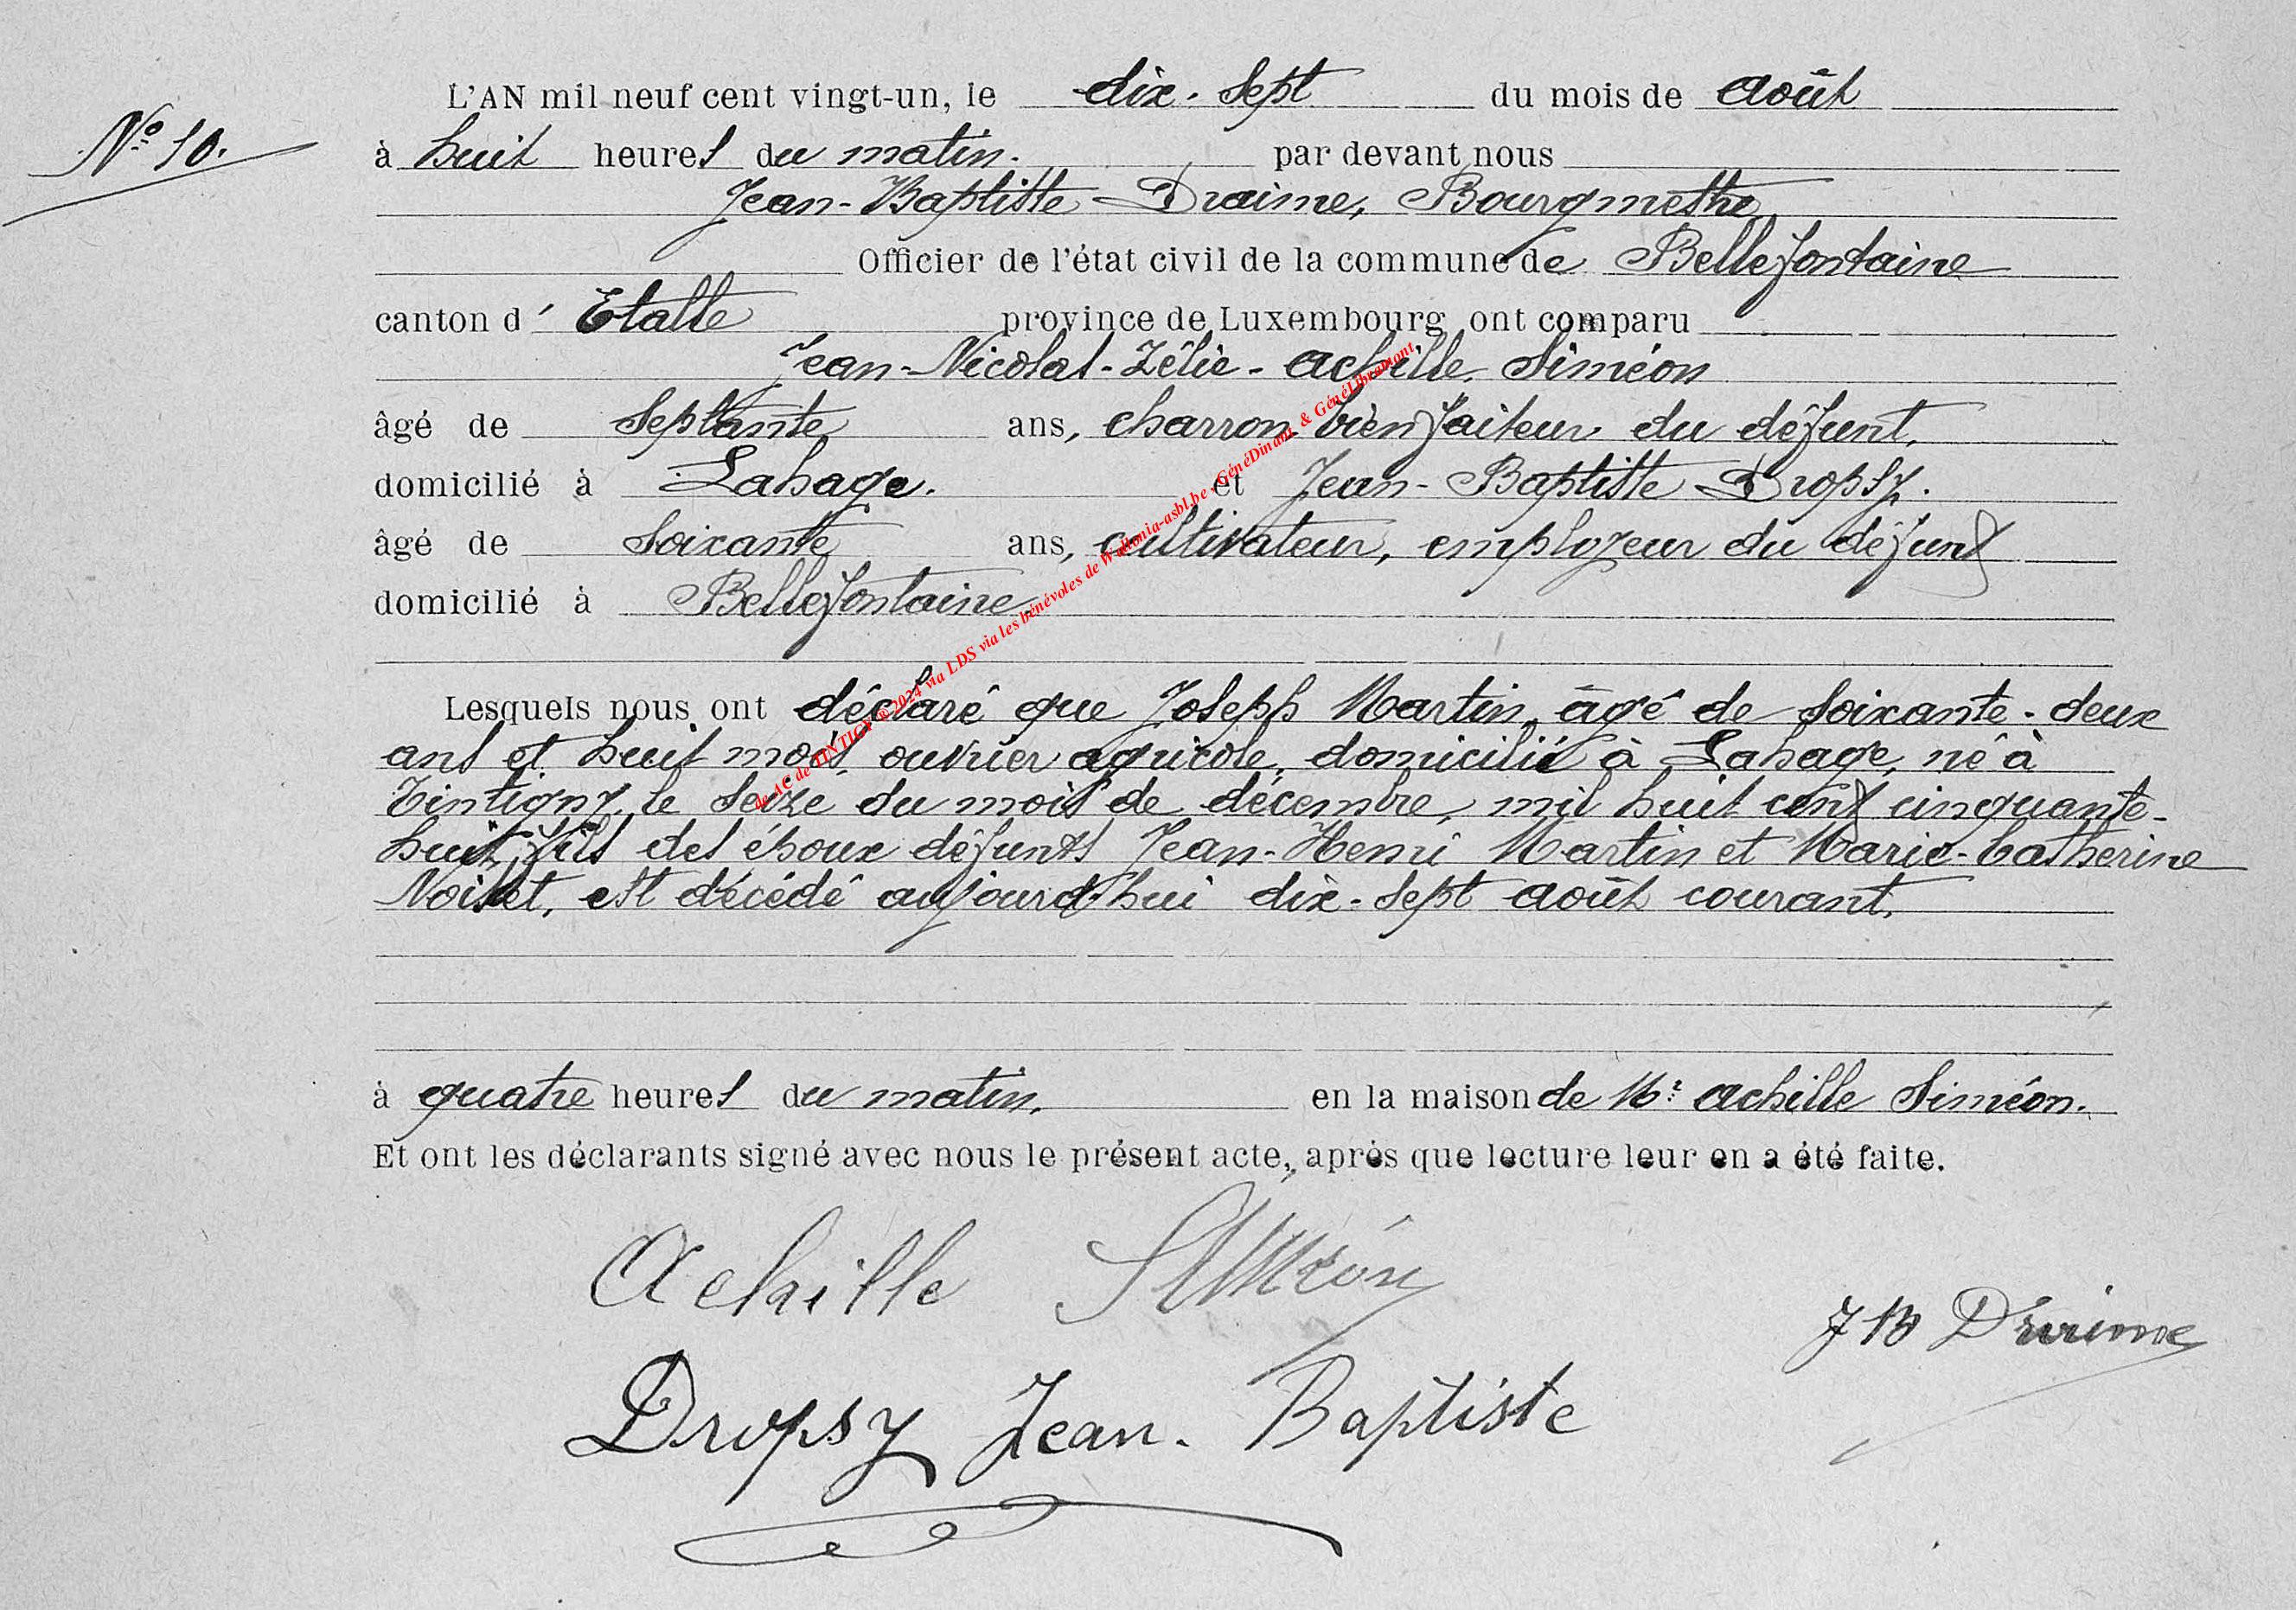 L'AN mil neuf cent vingt-un, le dix-sept du mois de Août
N° 10.
à huit heures du matin. par devant nous
Jean-Baptiste Draime, Bourgmestre
Officier de l'état civil de la commune de Bellefontaine
canton d' Etalle province de Luxembourg ont comparu
Jean-Nicolas-Zélie-Achille Siméon
âgé de septante ans, charron, bienfaiteur du défunt,
domicilié à Lahage. et Jean-Baptiste Dropsy.
âgé de soixante ans, cultivateur, employeur du défunt
domicilié à Bellefontaine.
Lesquels nous ont déclaré que Joseph Martin, âgé de soixante-deux
ans et huit mois, ouvrier agricole, domicilié à Lahage, né à
Tintigny, le seize du mois de décembre, mil huit cent cinquante-
huit, fils des époux défunts Jean-Henri Martin et Marie-Catherine
Noiset, est décédé aujourd'hui dix-sept août courant,
à quatre heures du matin, en la maison de Mr Achille Siméon.
Et ont les déclarants signé avec nous le présent acte, après que lecture leur en a été faite.
Achille Siméon
J B Draime
Dropsy Jean-Baptiste
de AC de TINTIGNY © 2024 via LDS via les bénévoles de Wallonia-asbl.be - GénéDinant & GénéLibramont